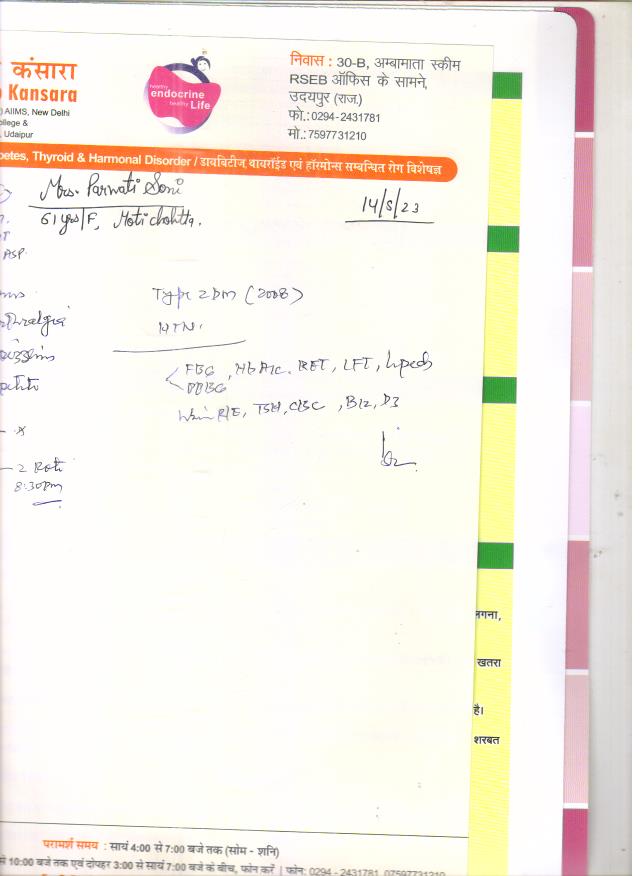 कंसारा
Kansara
AIIMS, New Delhi
College &
, Udaipur
healthy
endocrine
healthy Life
निवास : 30-B, अम्बामाता स्कीम
RSEB ऑफिस के सामने,
उदयपुर (राज.)
फो.:0294-2431781
मो.:7597731210
betes, Thyroid & Harmonal Disorder / डायबिटीज, थायरॉईड एवं हॉरमोन्स सम्बन्धित रोग विशेषज्ञ
Mrs. Parwati Soni
61 yrs/F,
14/5/23
ASP
Type 2 DM (2008)
HTN
FBG, HbA1c, RFT, LFT, Lipids
PPBG
Urine R/E, TSH, CBC, B12, D3
- x
- 2 Roti
8:30pm
लगना,
खतरा
है।
शरबत
परामर्श समय : सायं 4:00 से 7:00 बजे तक (सोम - शनि)
से 10:00 बजे तक एवं दोपहर 3:00 से सायं 7:00 बजे के बीच, फोन करें | फोन: 0294 - 2431781, 07597731210